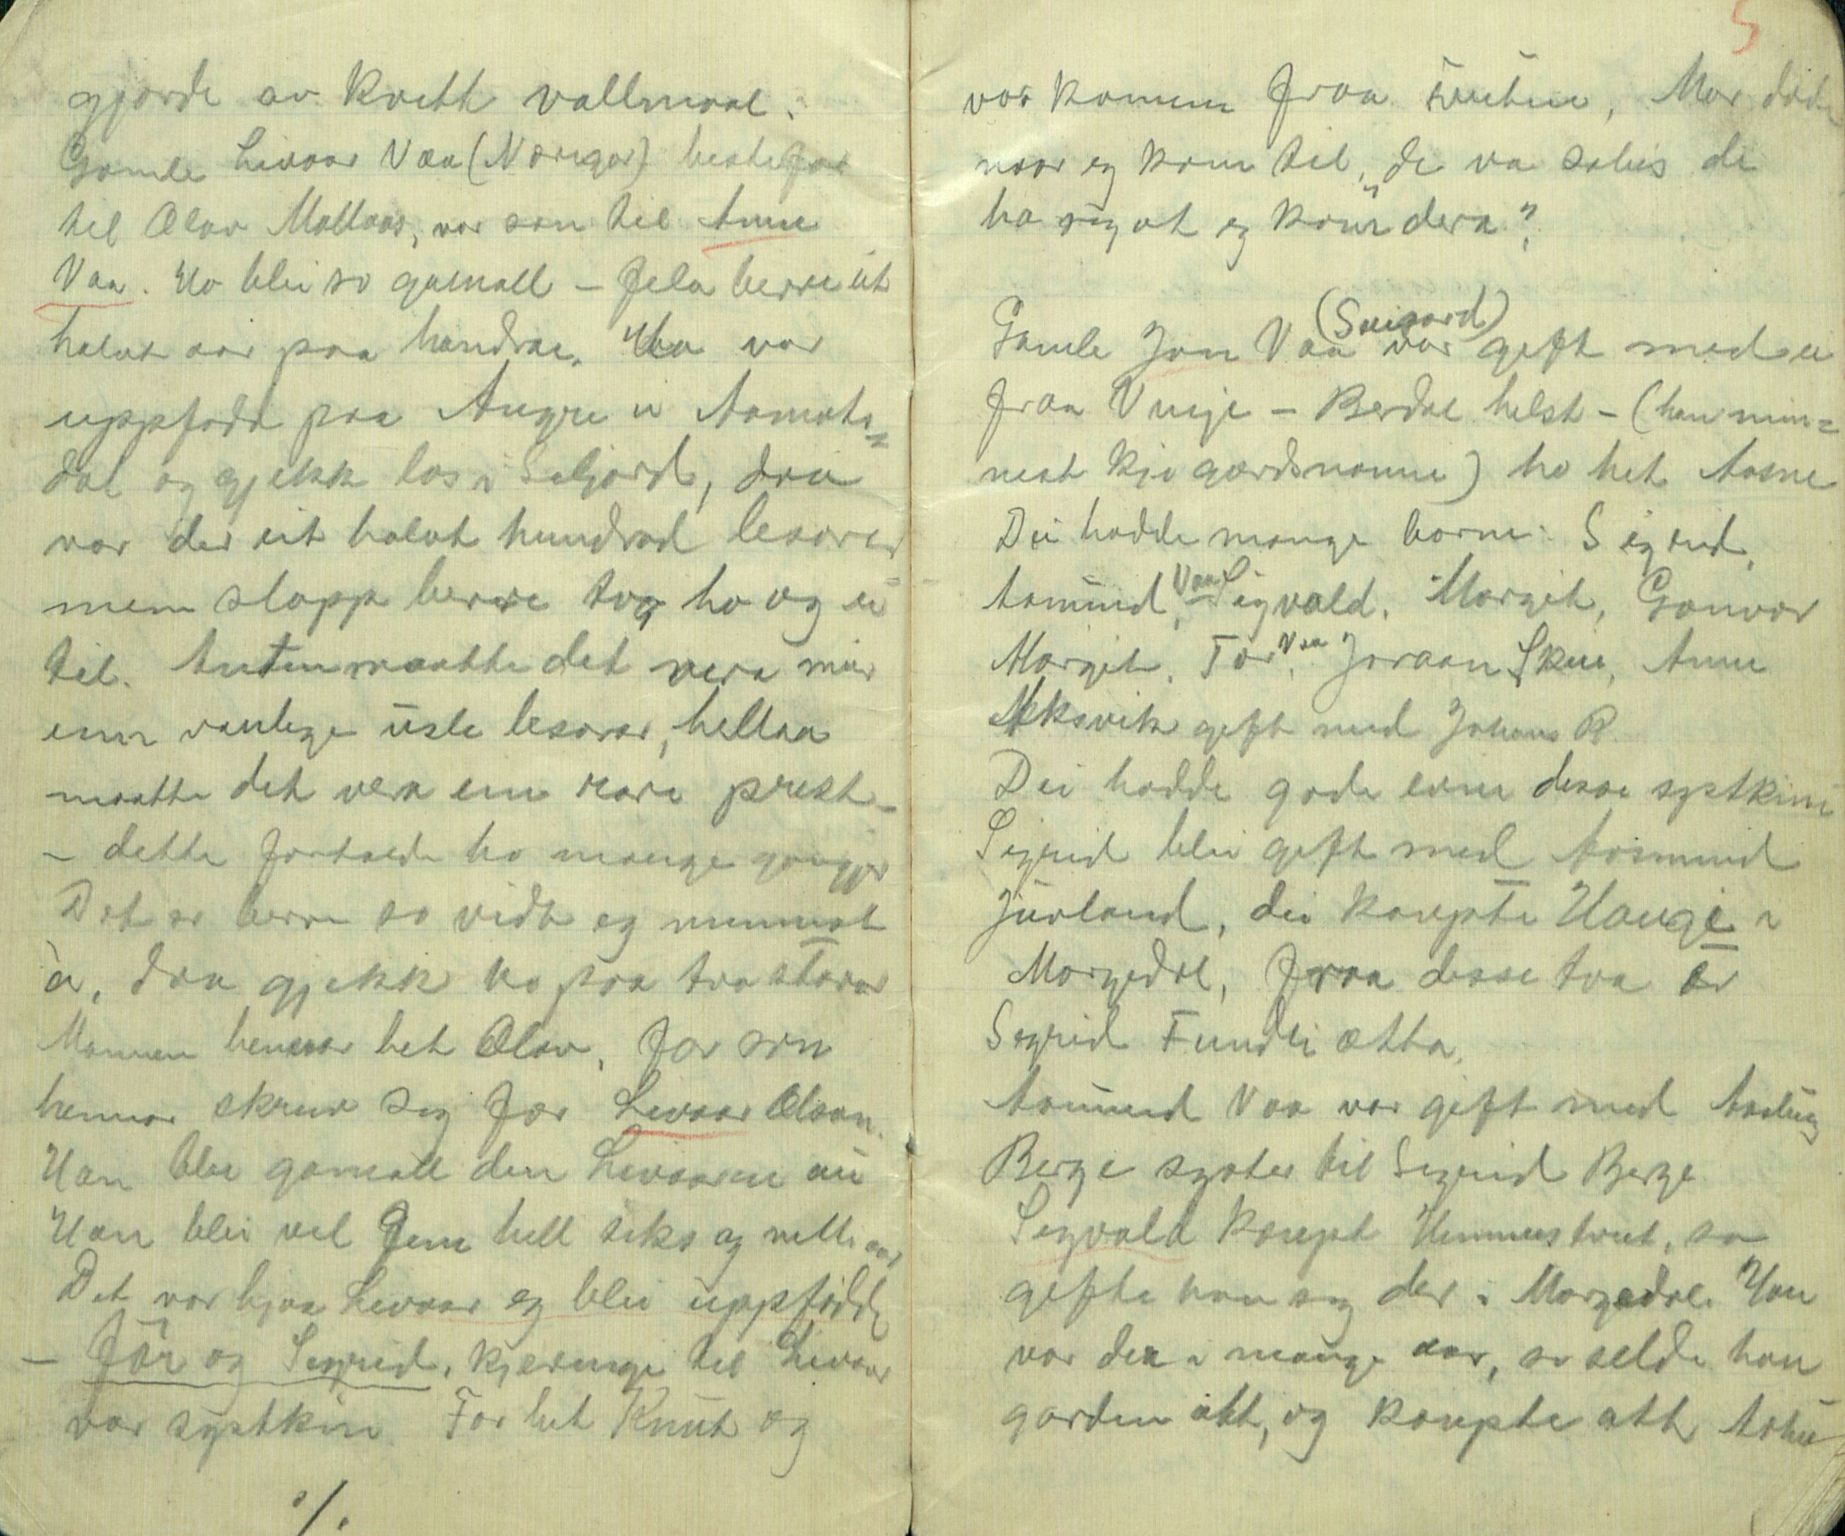 gjorde av kvitt vallmaal.
Gamle Livaar Vaa (Norigar) bestefar
til Olav Mallaas, var son til Anne
Vaa. Ho blei so gamall – fela berre eit
halvt aar paa hundrae. Ho var
uppfødd paa Augre i Aamots=
dal og gjekk las i Seljord, daa
var der eit halvt hundrad lesarar
men slapp berre två ho og ei
til. Anten maatte det vera meir
enn vanlege usle lesarar, hellaa
maatte det vera ein rare prest –
– dette fortalde ho mange gaangjir
Det er berre so vidt eg minnast
'a, daa gjekk ho paa tvo stavar
Mannen hennar het Olav, for son
hennar skreiv seg for Livaar Olsson.
Han blei gamall den Livaaren au
Han blei vel fem hell seks og nitti aar,
Det var hjaa Livaar eg blei uppfødd,
– Far og Sigrid, kjeringe til Livaar
var systkin Far het Knut og
./.
5
var komen fraa Mor døde
naar eg kom til, "de va soleis de
ha seg at eg kom dera".
(Suigard)
Gamle Jon Vaa var gift med ei
fraa Vinje – Berdal helst – (han min=
nest kje gardsnamne) ho het Aasne
Dei hadde mange born: Sigrid,
Aamund, Vaa Sigvald, Margit, Gunvor
Margit, Tor, Vaa Joraan Skei, Anne
Meksvik gift med Johans R.
Dei hadde gode evne desse systkini
Sigrid blei gift med Aasmund
Juvland, dei kaupte Haugè i
Morgedal, fraa desse tvo er
Sigrid Fundli ætta.
Aamund Vaa var gift med Aaslaug
Berge syster til Sigrid Berge
Sigvald kaupt Himmestveit, so
gifte han seg der i Morgedal. Han
var der i mange aar, so selde han
garden att, og kaupte att